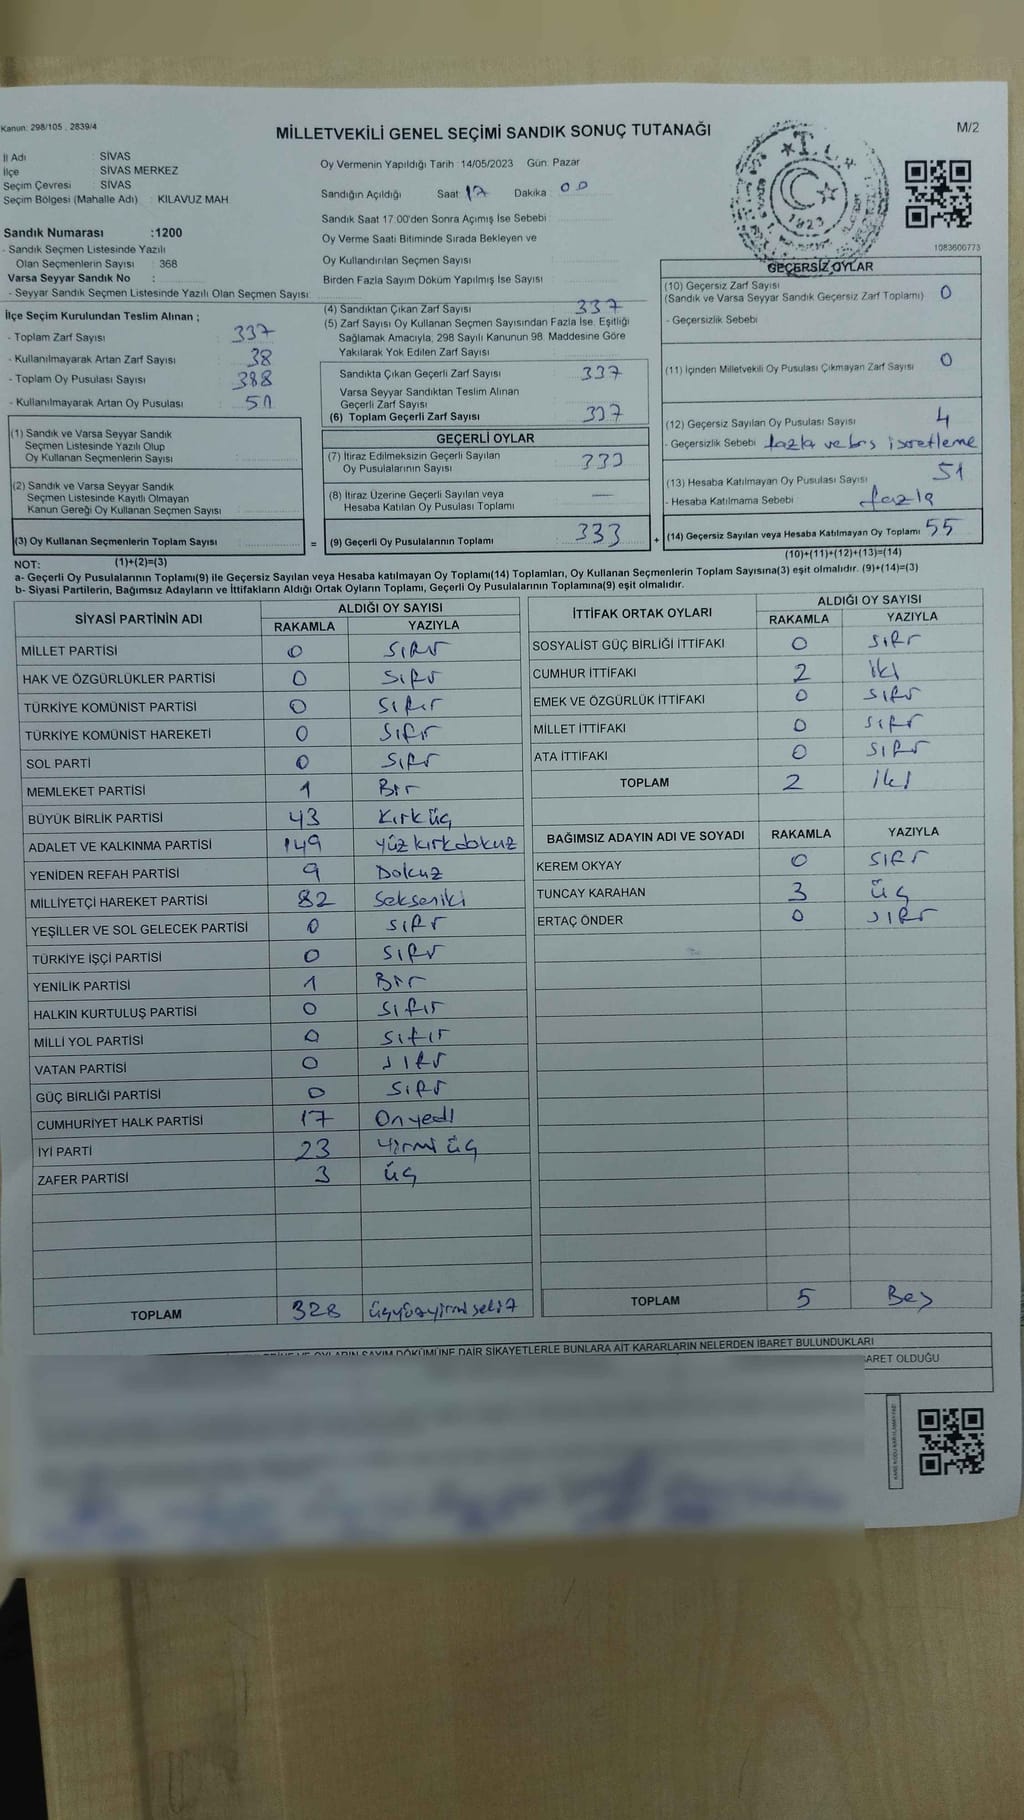 Kanun: 298/105 , 2839/4
MİLLETVEKİLİ GENEL SEÇİMİ SANDIK SONUÇ TUTANAĞI
M/2
İl Adı : SİVAS
İlçe SİVAS MERKEZ
Seçim Çevresi : SİVAS
Seçim Bölgesi (Mahalle Adı) : KILAVUZ MAH
Sandık Numarası :1200
- Sandık Seçmen Listesinde Yazılı
Olan Seçmenlerin Sayısı : 368
Varsa Seyyar Sandık No :
- Seyyar Sandık Seçmen Listesinde Yazılı Olan Seçmen Sayısı:
İlçe Seçim Kurulundan Teslim Alınan ;
- Toplam Zarf Sayısı 337
- Kullanılmayarak Artan Zarf Sayısı 38
- Toplam Oy Pusulası Sayısı 388
- Kullanılmayarak Artan Oy Pusulası 51
(1) Sandık ve Varsa Seyyar Sandık
Seçmen Listesinde Yazılı Olup
Oy Kullanan Seçmenlerin Sayısı
(2) Sandık ve Varsa Seyyar Sandık
Seçmen Listesinde Kayıtlı Olmayan
Kanun Gereği Oy Kullanan Seçmen Sayısı
(3) Oy Kullanan Seçmenlerin Toplam Sayısı =
Oy Vermenin Yapıldığı Tarih : 14/05/2023 Gün: Pazar
Sandığın Açıldığı Saat: 17 Dakika : 00
Sandık Saat 17 00'den Sonra Açımış İse Sebebi
Oy Verme Saati Bitiminde Sırada Bekleyen ve
Oy Kullandırılan Seçmen Sayısı
Birden Fazla Sayım Döküm Yapılmış İse Sayısı
(4) Sandıktan Çıkan Zarf Sayısı 337
(5) Zarf Sayısı Oy Kullanan Seçmen Sayısından Fazla İse, Eşitliği
Sağlamak Amacıyla; 298 Sayılı Kanunun 98. Maddesine Göre
Yakılarak Yok Edilen Zarf Sayısı
Sandıkta Çıkan Geçerli Zarf Sayısı 337
Varsa Seyyar Sandıktan Teslim Alınan
Geçerli Zarf Sayısı
(6) Toplam Geçerli Zarf Sayısı 337
GEÇERLİ OYLAR
(7) İtiraz Edilmeksizin Geçerli Sayılan
Oy Pusulalarının Sayısı 333
(8) İtiraz Üzerine Geçerli Sayılan veya
Hesaba Katılan Oy Pusulası Toplamı —
(9) Geçerli Oy Pusulalarının Toplamı 333 +
T.C.
1923
1083600773
GEÇERSİZ OYLAR
(10) Geçersiz Zarf Sayısı 0
(Sandık ve Varsa Seyyar Sandık Geçersiz Zarf Toplamı)
- Geçersizlik Sebebi
(11) İçinden Milletvekili Oy Pusulası Çıkmayan Zarf Sayısı 0
(12) Geçersiz Sayılan Oy Pusulası Sayısı 4
- Geçersizlik Sebebi fazla ve boş işaretleme
(13) Hesaba Katılmayan Oy Pusulası Sayısı 51
- Hesaba Katılmama Sebebi fazla
(14) Geçersiz Sayılan veya Hesaba Katılmayan Oy Toplamı 55
NOT: (1)+(2)=(3) (10)+(11)+(12)+(13)=(14)
a- Geçerli Oy Pusulalarının Toplamı(9) ile Geçersiz Sayılan veya Hesaba katılmayan Oy Toplamı(14) Toplamları, Oy Kullanan Seçmenlerin Toplam Sayısına(3) eşit olmalıdır. (9)+(14)=(3)
b- Siyasi Partilerin, Bağımsız Adayların ve İttifakların Aldığı Ortak Oyların Toplamı, Geçerli Oy Pusulalarının Toplamına(9) eşit olmalıdır.
SİYASİ PARTİNİN ADI ALDIĞI OY SAYISI
RAKAMLA YAZIYLA
MİLLET PARTİSİ 0 Sıfır
HAK VE ÖZGÜRLÜKLER PARTİSİ 0 Sıfır
TÜRKİYE KOMÜNİST PARTİSİ 0 Sıfır
TÜRKİYE KOMÜNİST HAREKETİ 0 Sıfır
SOL PARTİ 0 Sıfır
MEMLEKET PARTİSİ 1 Bir
BÜYÜK BİRLİK PARTİSİ 43 Kırk üç
ADALET VE KALKINMA PARTİSİ 149 yüz kırkdokuz
YENİDEN REFAH PARTİSİ 9 Dokuz
MİLLİYETÇİ HAREKET PARTİSİ 82 Sekseniki
YEŞİLLER VE SOL GELECEK PARTİSİ 0 Sıfır
TÜRKİYE İŞÇİ PARTİSİ 0 Sıfır
YENİLİK PARTİSİ 1 Bir
HALKIN KURTULUŞ PARTİSİ 0 Sıfır
MİLLİ YOL PARTİSİ 0 Sıfır
VATAN PARTİSİ 0 Sıfır
GÜÇ BİRLİĞİ PARTİSİ 0 Sıfır
CUMHURİYET HALK PARTİSİ 17 Onyedi
İYİ PARTİ 23 Yirmi üç
ZAFER PARTİSİ 3 üç
TOPLAM 328 üçyüzyirmi sekiz
İTTİFAK ORTAK OYLARI ALDIĞI OY SAYISI
RAKAMLA YAZIYLA
SOSYALİST GÜÇ BİRLİĞİ İTTİFAKI 0 Sıfır
CUMHUR İTTİFAKI 2 iki
EMEK VE ÖZGÜRLÜK İTTİFAKI 0 Sıfır
MİLLET İTTİFAKI 0 Sıfır
ATA İTTİFAKI 0 Sıfır
TOPLAM 2 iki
BAĞIMSIZ ADAYIN ADI VE SOYADI RAKAMLA YAZIYLA
KEREM OKYAY 0 Sıfır
TUNCAY KARAHAN 3 üç
ERTAÇ ÖNDER 0 Sıfır
TOPLAM 5 Beş
OYLARIN SAYIM DÖKÜMÜNE DAİR ŞİKAYETLERLE BUNLARA AİT KARARLARIN NELERDEN İBARET BULUNDUKLARI
BARET OLDUĞU